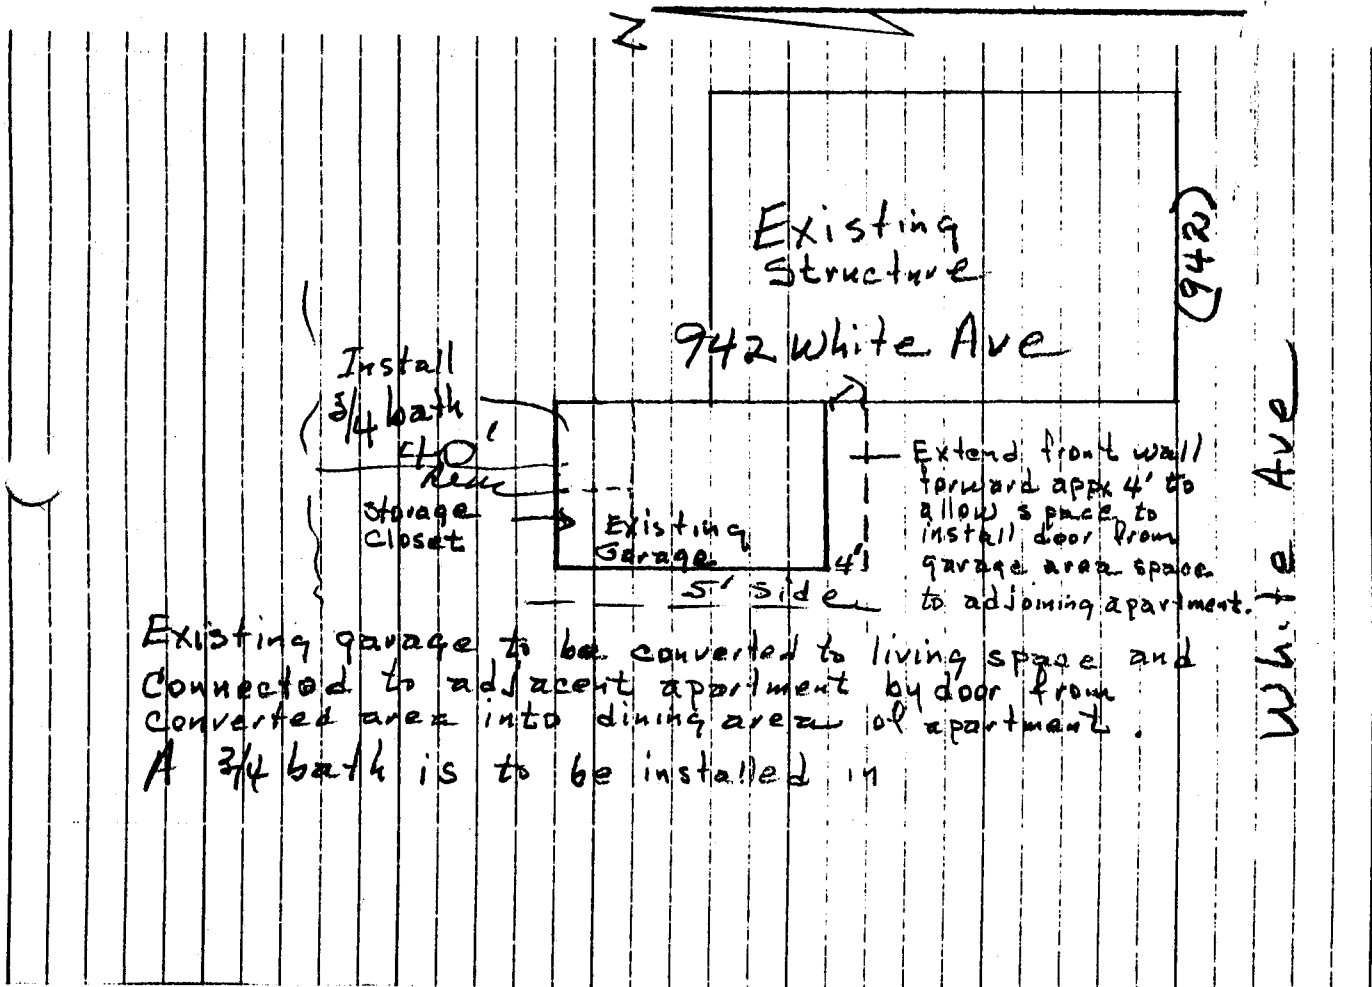 N
Existing
Structure
(942)
942 White Ave
White Ave
Install
3/4 bath
40'
Rear
Storage
Closet
Existing
Garage
4'
5' side
Extend front wall
forward appx 4' to
allow space to
install door from
garage area space
to adjoining apartment.
Existing garage to be converted to living space and
Connected to adjacent apartment by door from
converted area into dining area of apartment.
A 3/4 bath is to be installed in